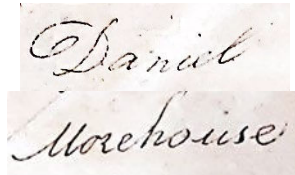 Daniel
Morehouse